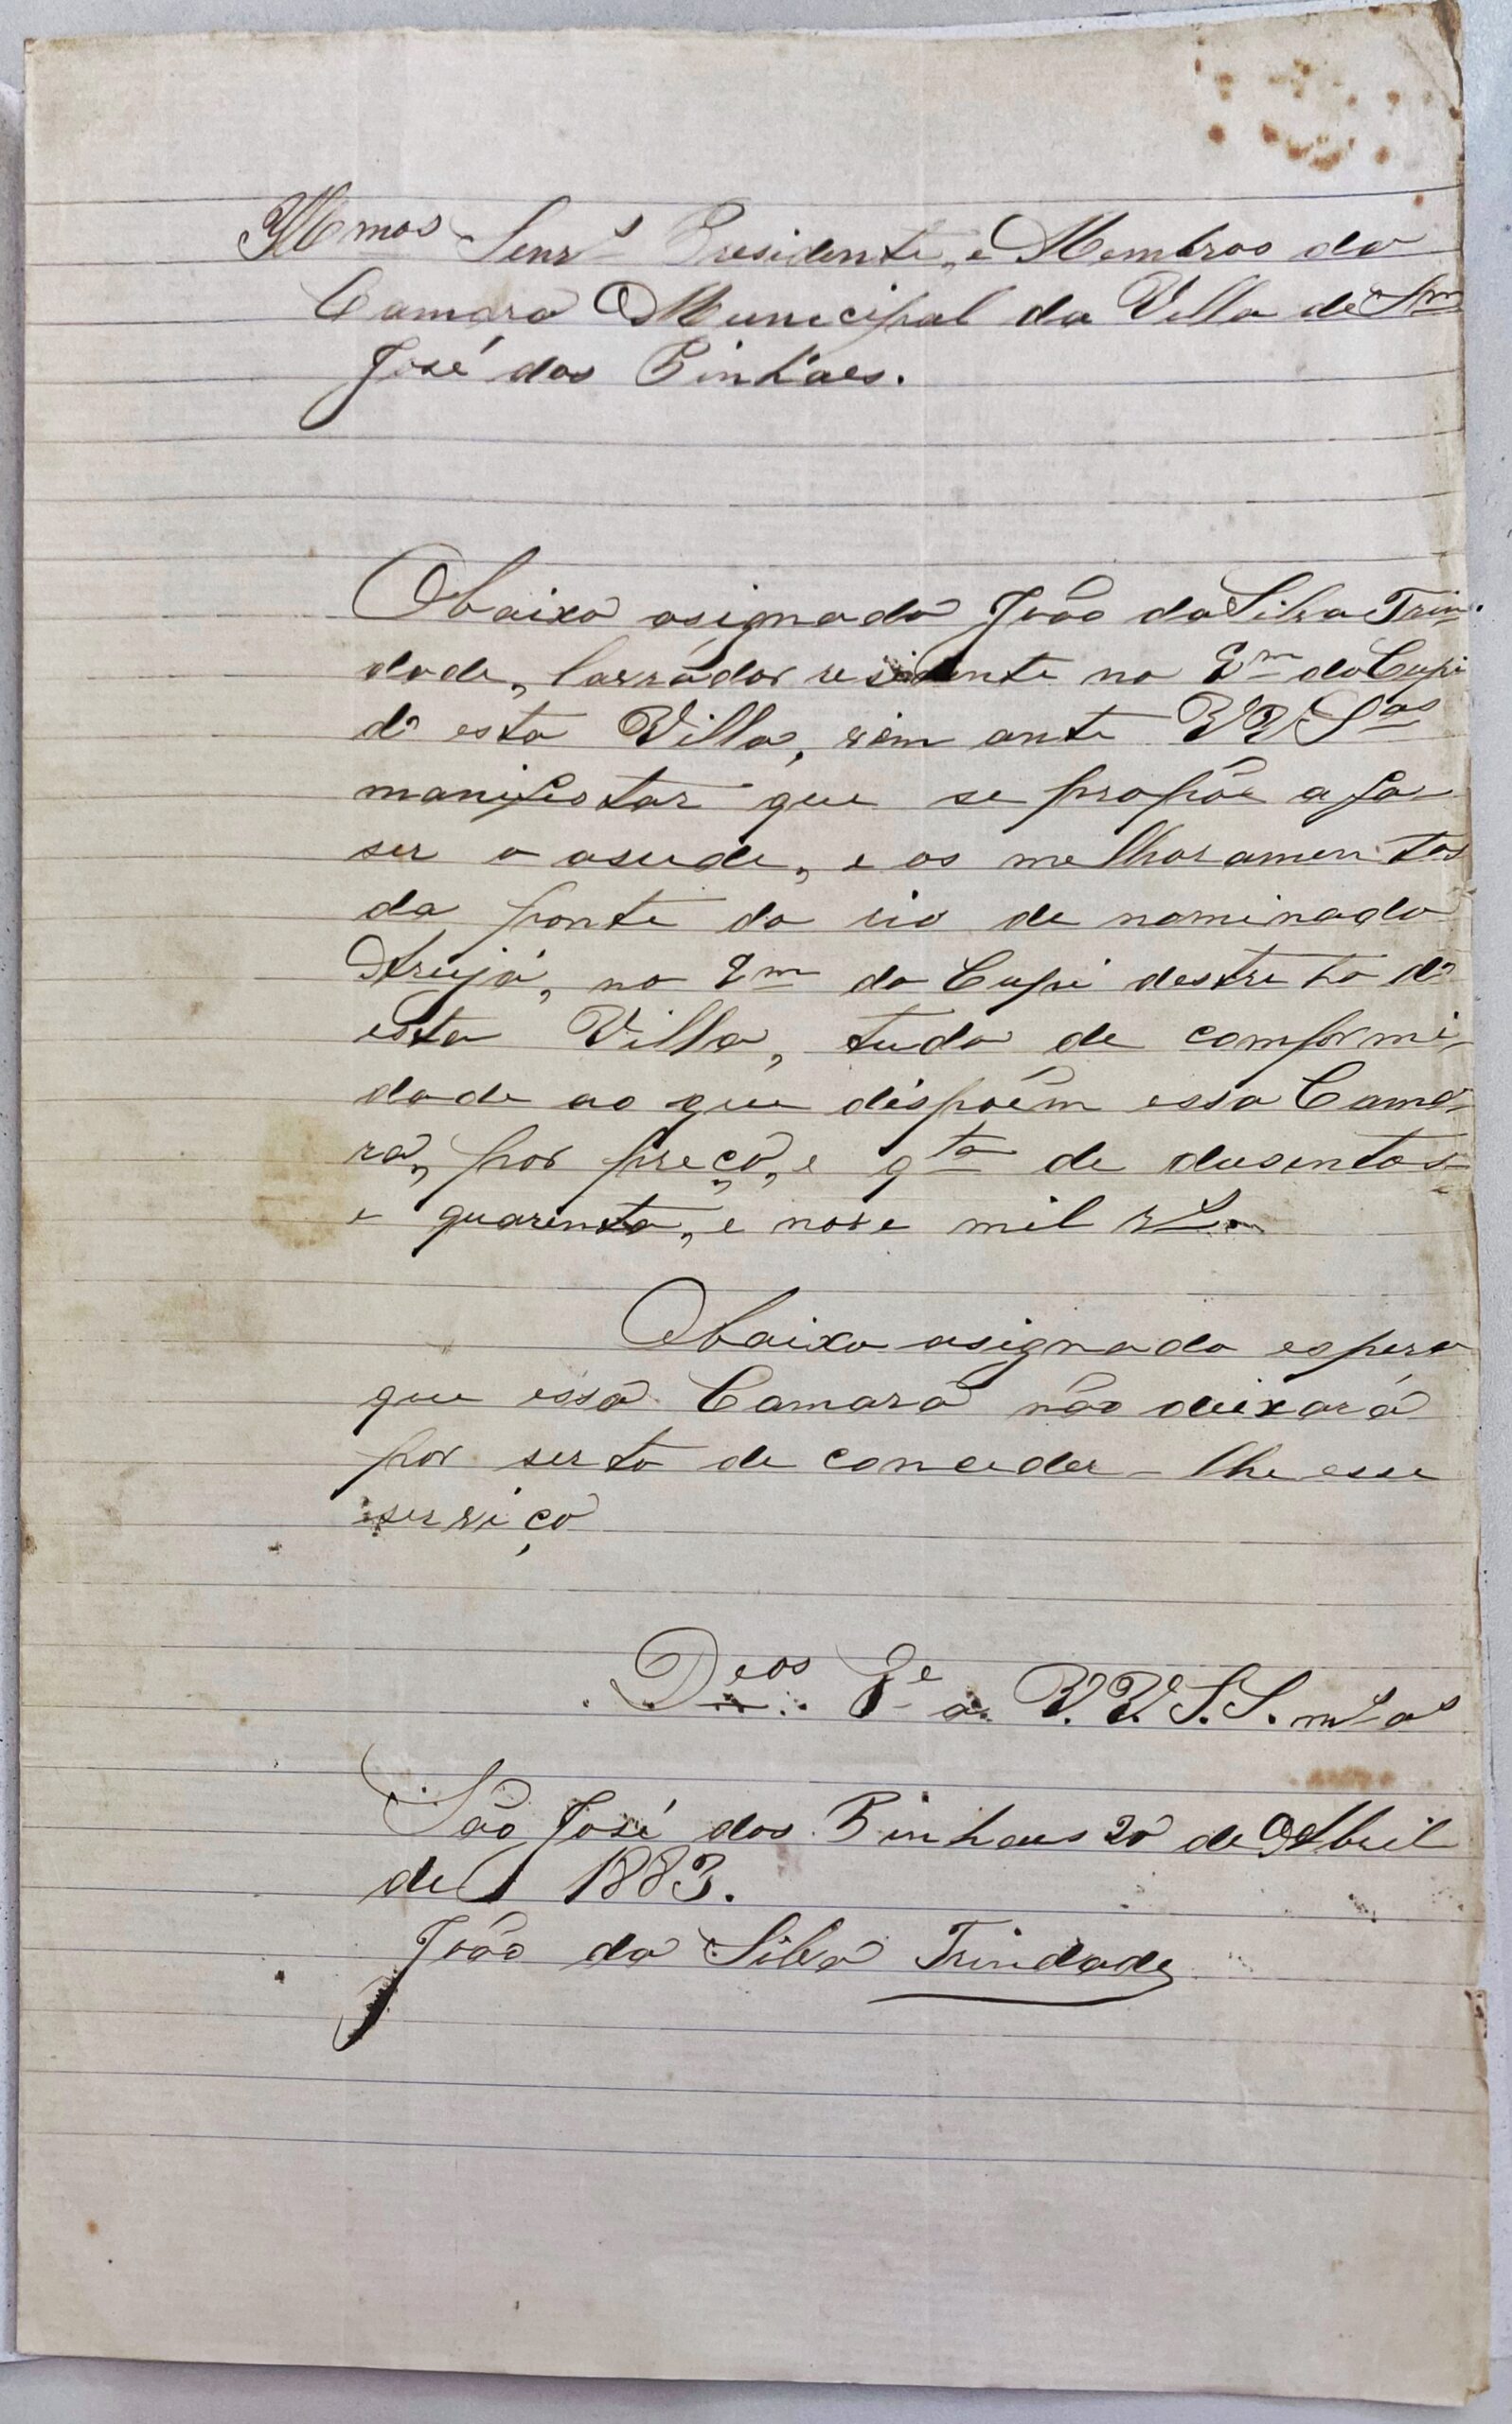 Illmos Senrs Presidente, e Membros da
Camara Municipal da Villa de Sm
José dos Pinhaes.
Obaixo asignado João da Silva Trin-
dade, lavrador residente no Qm do Cupi
d'esta Villa, vem ante VVSas
manifestar que se propõe a fa-
ser o asude, e os melhoramentos
da ponte do rio de nominado
Arujá, no Qm do Cupi destrito d'
esta Villa, tudo de comformi-
dade ao que dispoem essa Cama-
ra, por preço, e qta de dusentos
e quarenta, e nove mil rs.
Obaixo asignado espera
que essa Camara não deixará
por serto de conceder-lhe esse
serviço
Deos Ge a V.V.S.S. ms as
São José dos Pinhaes 20 de Abril
de 1883.
João da Silva Trindade